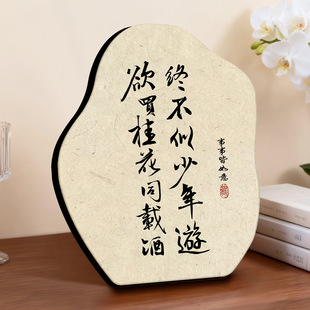 欲買桂花同載酒
终不似少年遊
事事皆如意